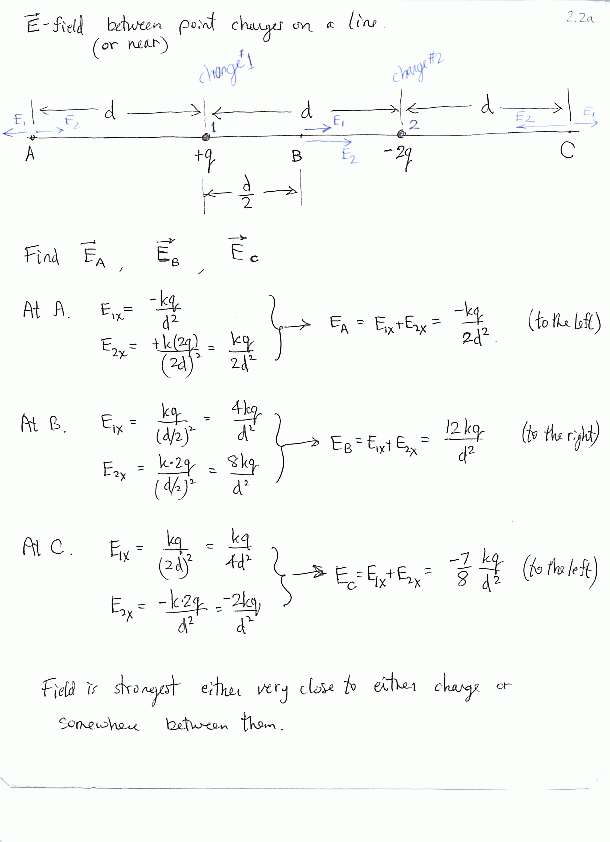 2.2a
E⃗-field between point charges on a line.
(or near)
charge#1 charge#2
d d d
E₁ E₂ 1 E₁ 2 E₂ E₁
A +q B E₂ -2q C
d/2
Find E⃗_A, E⃗_B, E⃗_C
At A. E₁ₓ = -kq/d²
E₂ₓ = +k(2q)/(2d)² = kq/2d² E_A = E₁ₓ+E₂ₓ = -kq/2d² (to the left)
At B. E₁ₓ = kq/(d/2)² = 4kq/d²
E₂ₓ = k·2q/(d/2)² = 8kq/d² E_B = E₁ₓ+E₂ₓ = 12kq/d² (to the right)
At C. E₁ₓ = kq/(2d)² = kq/4d²
E₂ₓ = -k·2q/d² = -2kq/d² E_C = E₁ₓ+E₂ₓ = -7/8 kq/d² (to the left)
Field is strongest either very close to either charge or
somewhere between them.